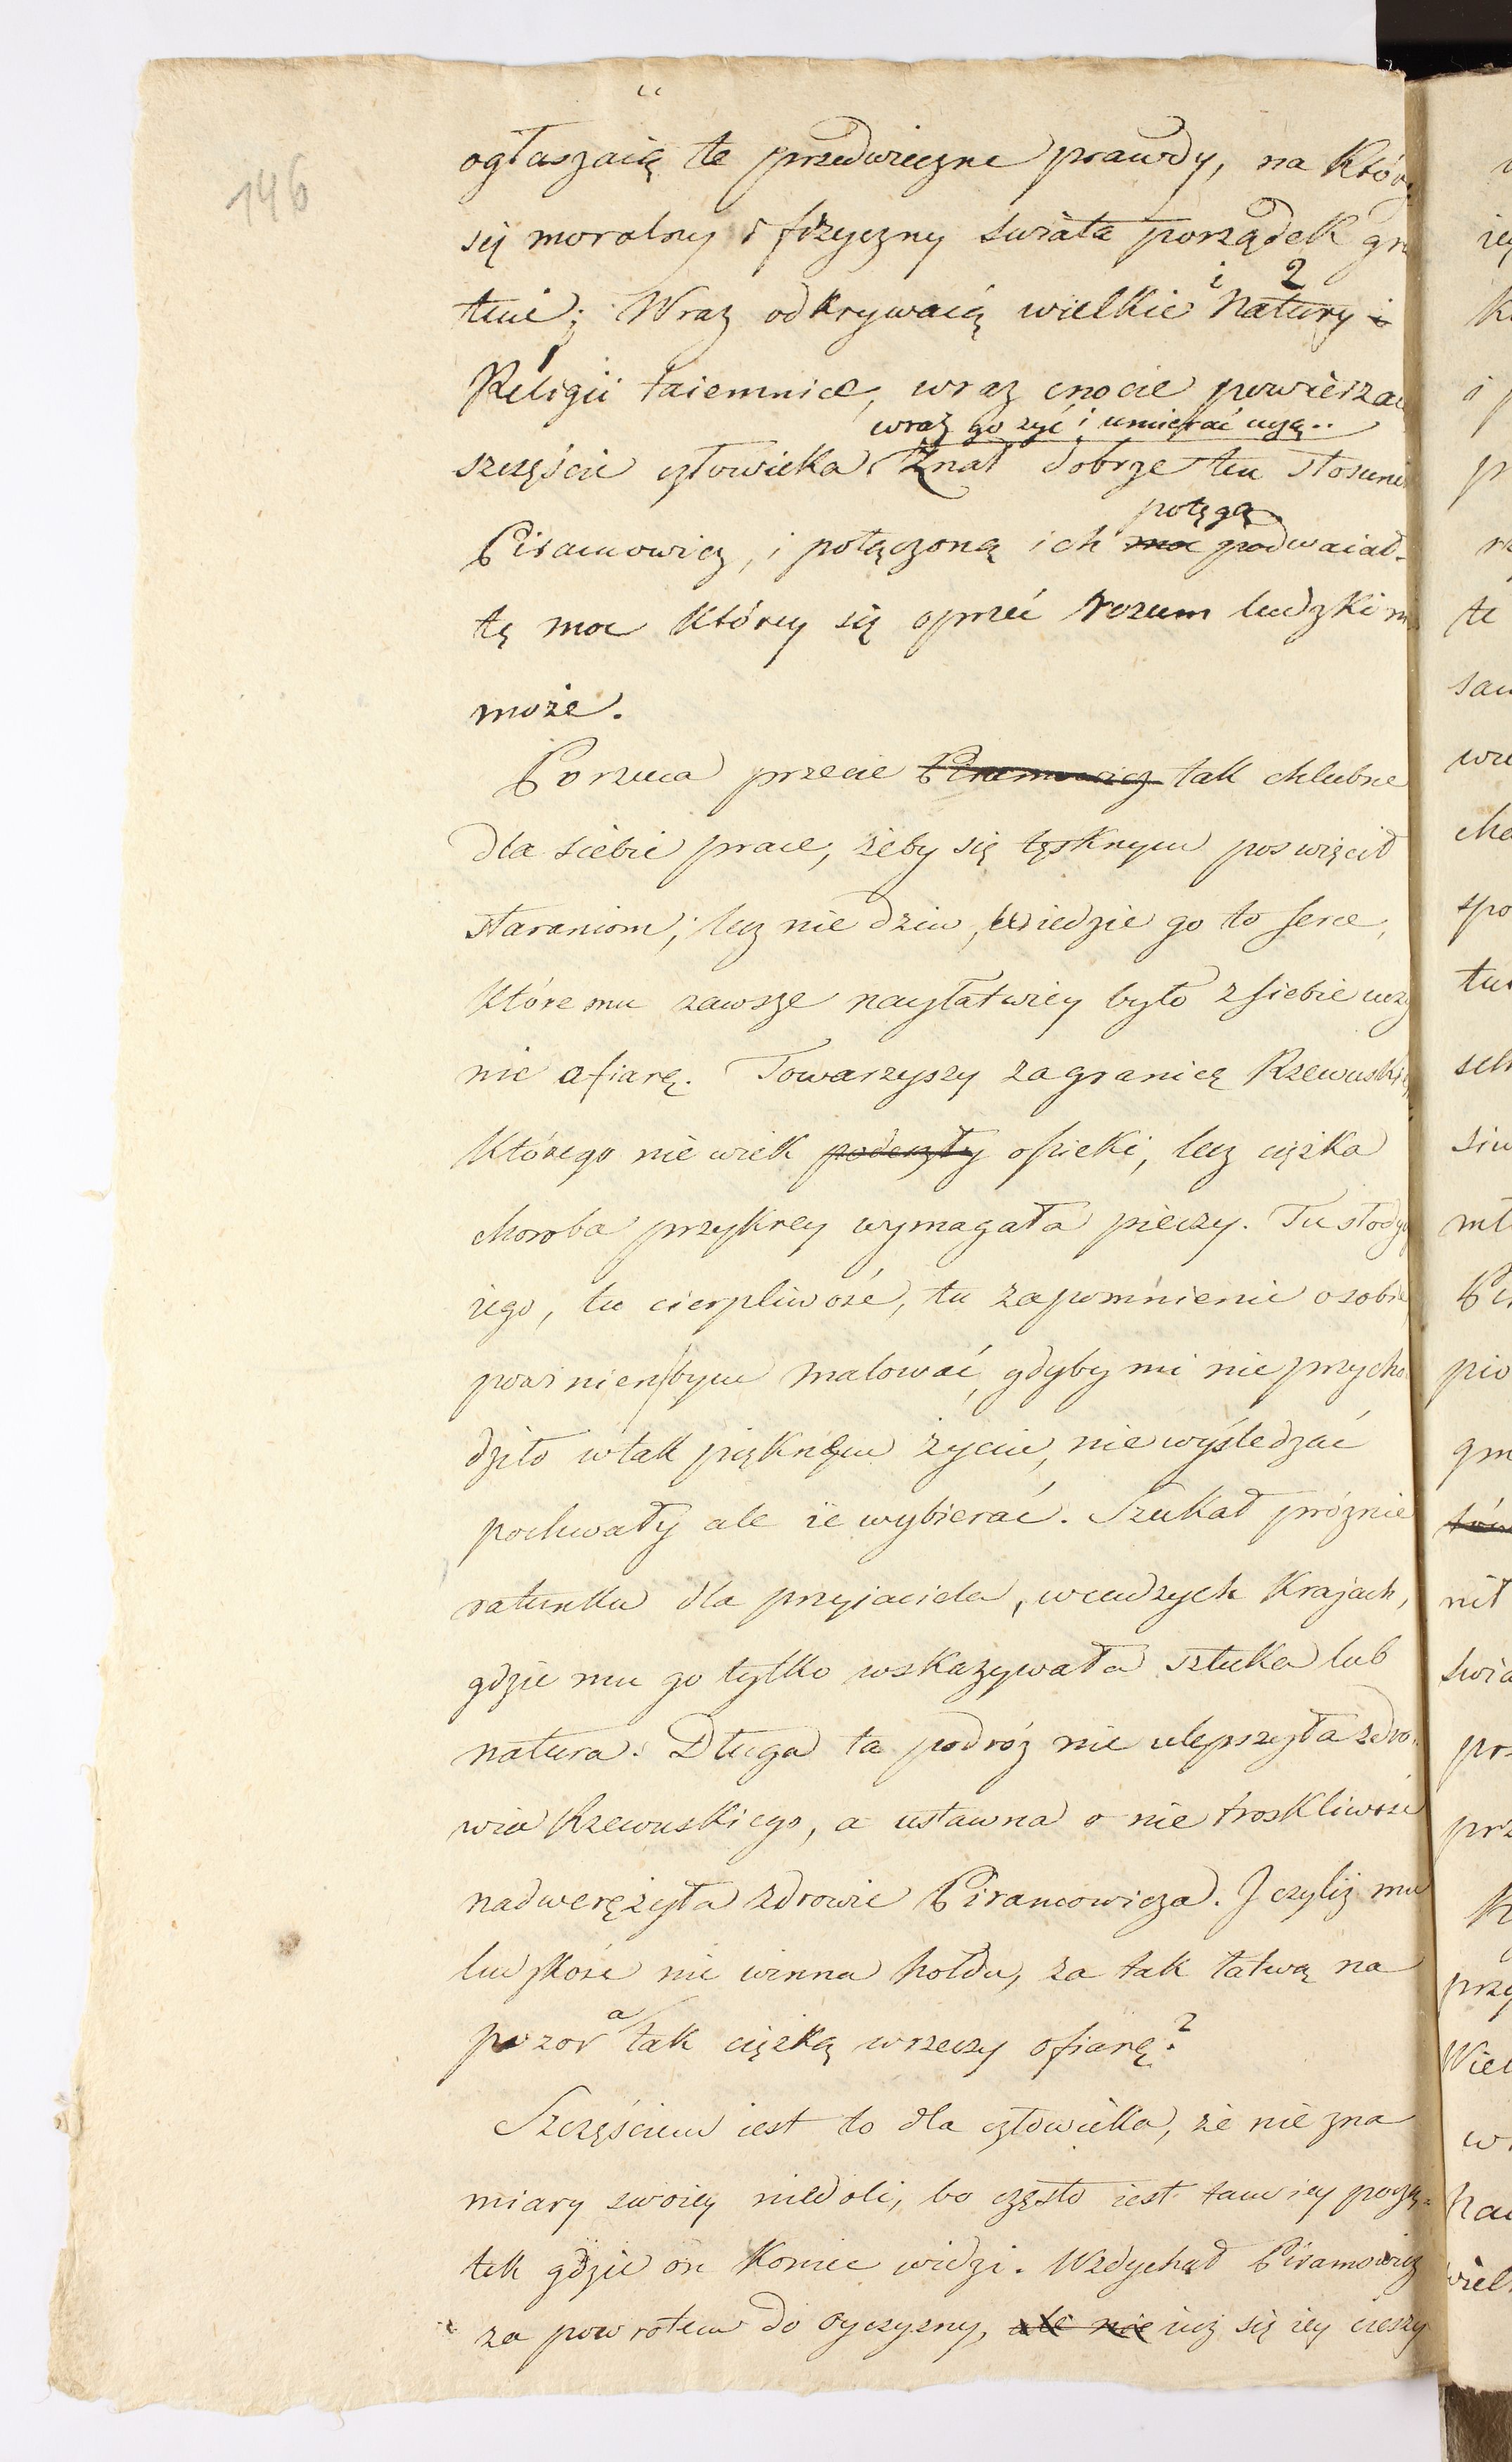 146
ogłaszaią te przedwieczne prawdy, na któr
się moralny i fizyczny swiata porządek gr
i 2
tuie; Wraz odkrywaią wielkie Natury i
Religii taiemnice, wraz cnocie powierzai
wraz go zyć i umierać uczą..
szczęście człowieka. Znał dobrze ten stosune
potęgą
Piramowicz, i połączoną ich moc podwaiał
tę moc którey się oprzeć rozum ludzki ni
może.
Porzuca przecie Piramowicz tak chlubne
dla siebie prace, żeby się tęsknym poswięcił
staraniom; lecz nie dziw, wiedzie go to serce,
któremu zawsze nayłatwiey było z siebie uczy
nic ofiarę. Towarzyszy zagranicą Rzewuski
którego nie wiek podeszły opieki, lecz ciężka
choroba przykrey wymagała pieczy. Tu słody
iego, tu cierpliwość, tu zapomnienie o sobie
powinienbym malować, gdyby mi nie przycho
dziło w tak pięknym życiu, nie wyśledzać
pochwały ale ie wybierać. Szukał próznie
ratunku dla przyiaciela, w cudzych Krajach,
gdzie mu go tylko wskazywała sztuka lub
natura. Długa ta podróz nie ulepszyła zdro
wia Rzewuskiego, a ustawna o nie troskliwość
nadweręzyła zdrowie Piramowicza. I czyliz mu
ludzkość nie winna hołdu, za tak łatwą na
a
pozor tak ciężką w rzeczy ofiarę?
Szczęściem iest to dla człowieka, że nie zna
miary swoiey niedoli, bo często iest tam iey począ-
tek gdzie on koniec widzi. Wzdychał Piramowicz
za powrotem do oyczyzny, ale nie iuż się iey cieszy